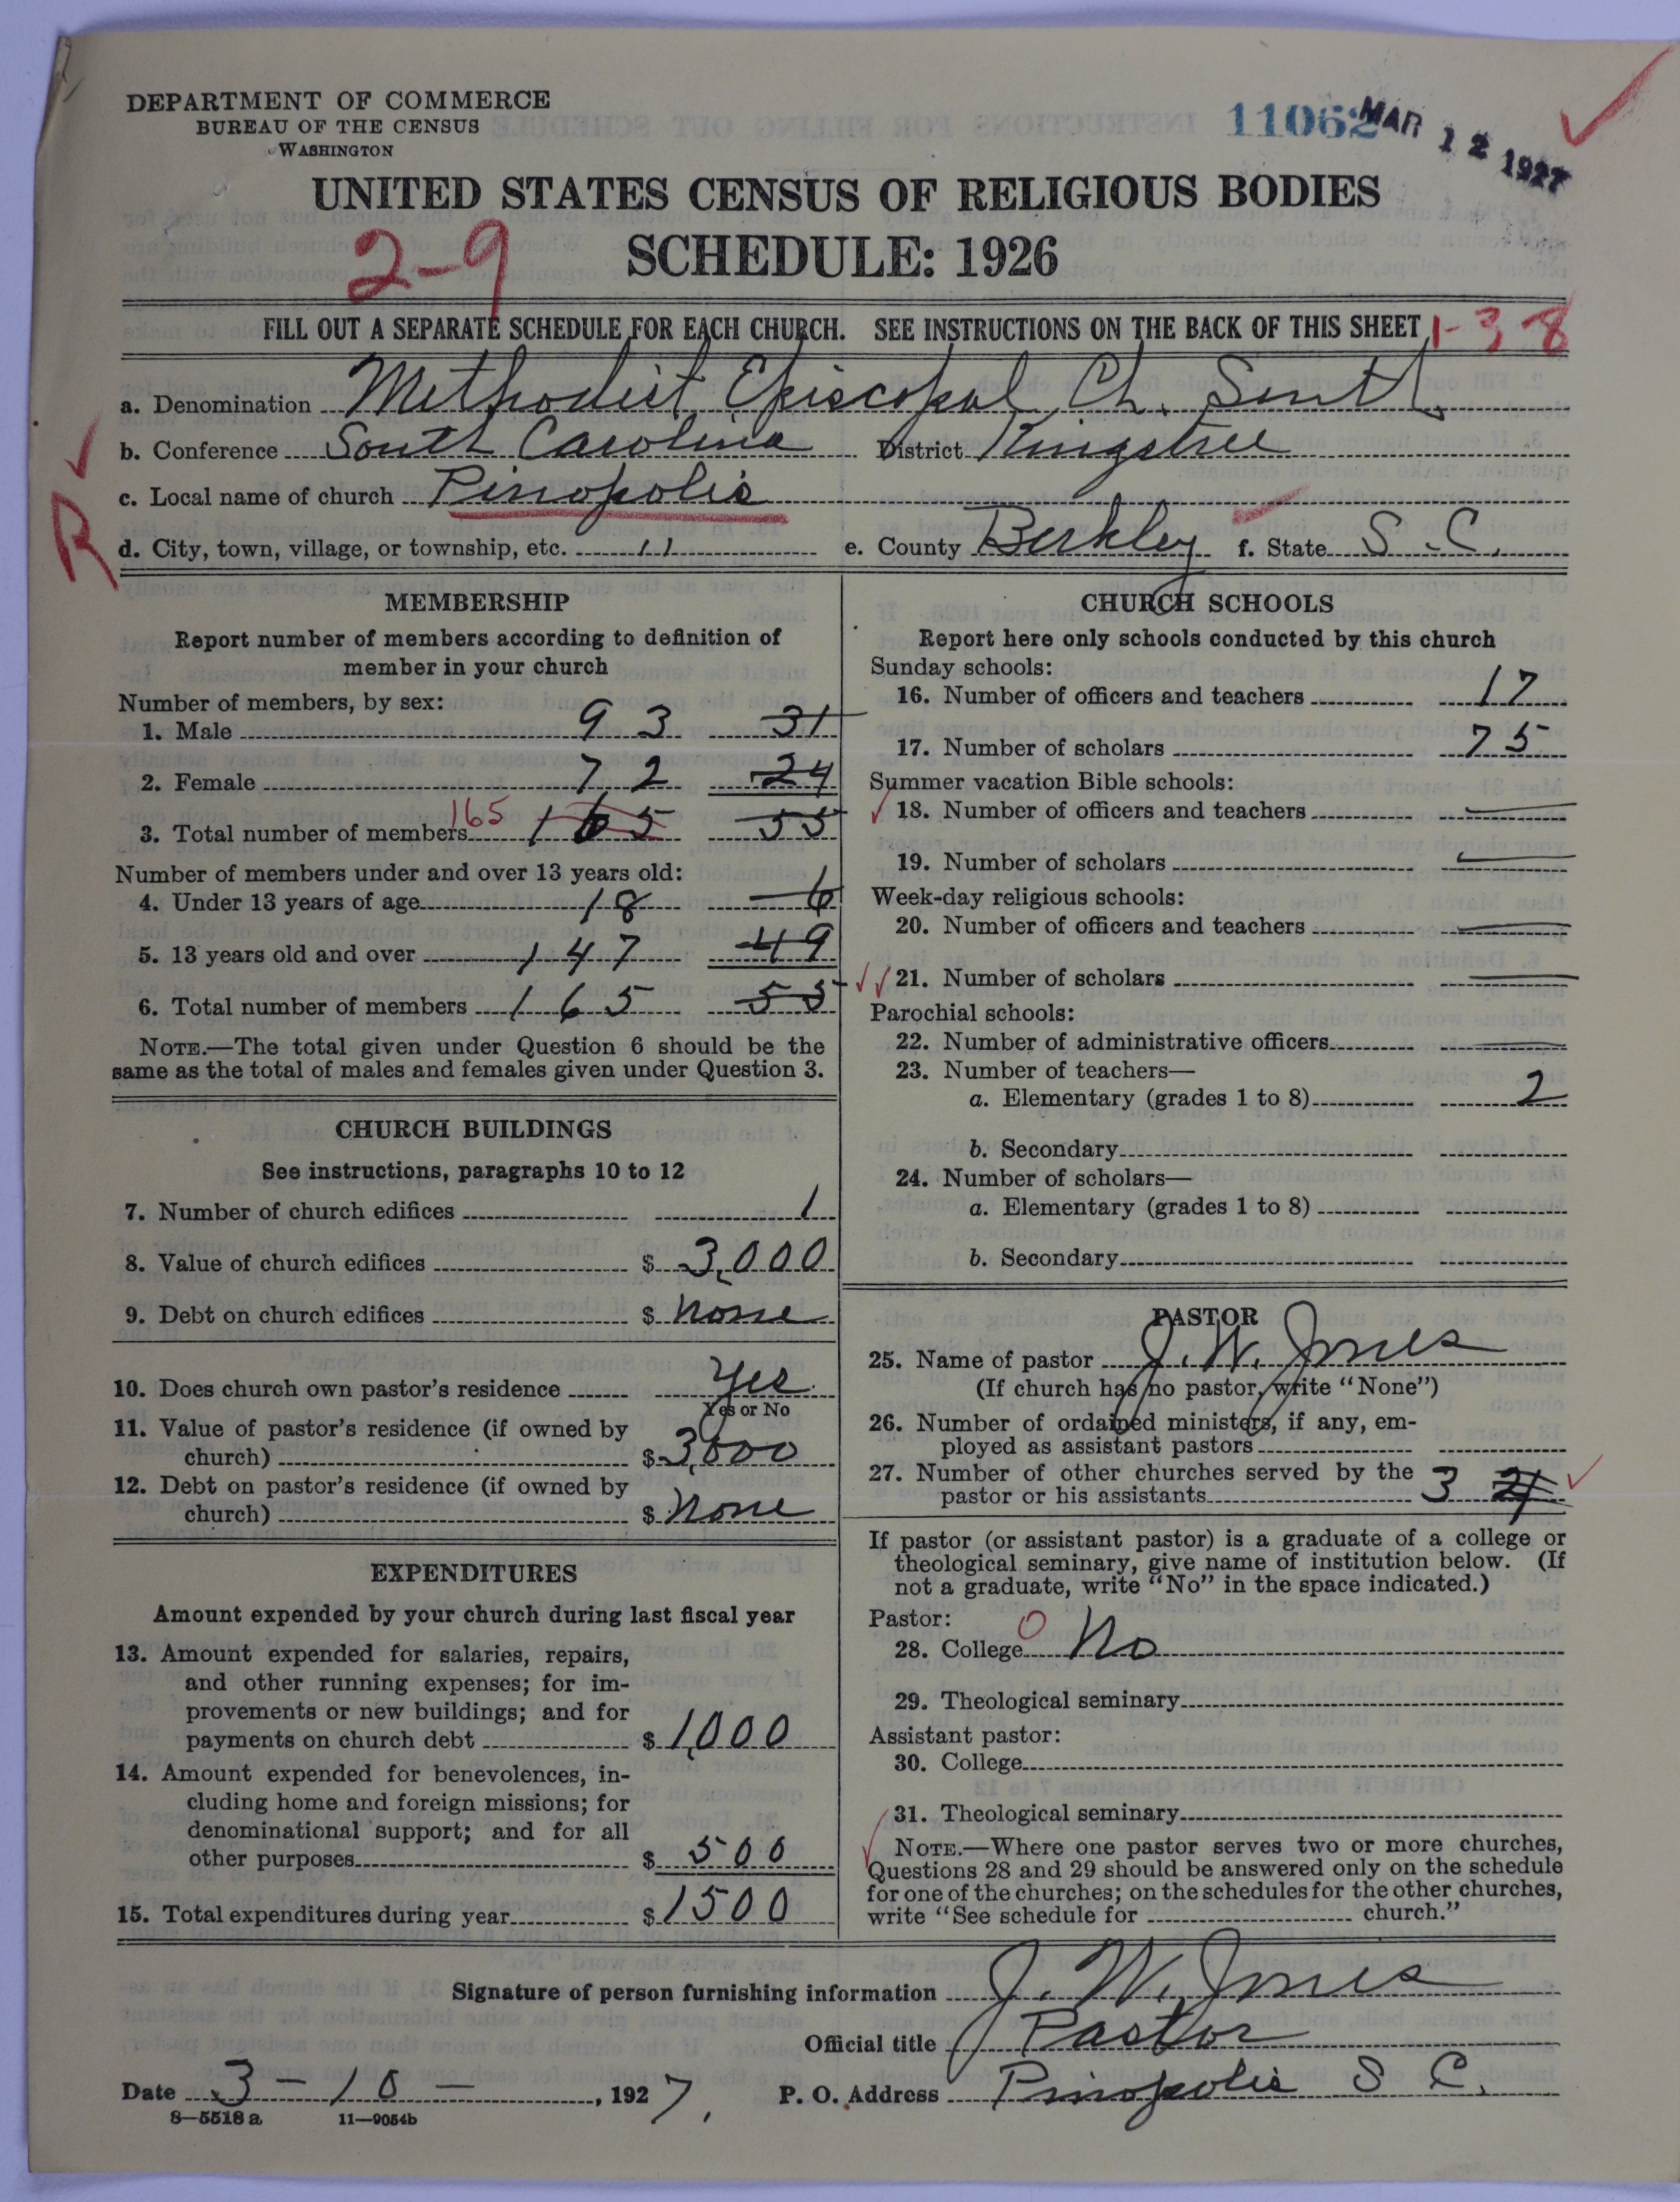 DEPARTMENT OF COMMERCE
BUREAU OF THE CENSUS
WASHINGTON
11062 MAR 12 1927
UNITED STATES CENSUS OF RELIGIOUS BODIES
SCHEDULE: 1926
2-9
FILL OUT A SEPARATE SCHEDULE FOR EACH CHURCH. SEE INSTRUCTIONS ON THE BACK OF THIS SHEET 1-38
a. Denomination Methodist Episcopal Ch. South
b. Conference South Carolina District Kingstree
c. Local name of church Pinopolis
R
d. City, town, village, or township, etc. " e. County Berkley f. State S.C.
MEMBERSHIP
Report number of members according to definition of
member in your church
Number of members, by sex:
1. Male 93 31
2. Female 72 24
3. Total number of members 165 165 55
Number of members under and over 13 years old:
4. Under 13 years of age 18 6
5. 13 years old and over 147 49
6. Total number of members 165 55
NOTE.—The total given under Question 6 should be the
same as the total of males and females given under Question 3.
CHURCH BUILDINGS
See instructions, paragraphs 10 to 12
7. Number of church edifices 1
8. Value of church edifices $ 3,000
9. Debt on church edifices $ None
10. Does church own pastor's residence Yes
Yes or No
11. Value of pastor's residence (if owned by
church) $ 3,000
12. Debt on pastor's residence (if owned by
church) $ None
EXPENDITURES
Amount expended by your church during last fiscal year
13. Amount expended for salaries, repairs,
and other running expenses; for im-
provements or new buildings; and for
payments on church debt $ 1,000
14. Amount expended for benevolences, in-
cluding home and foreign missions; for
denominational support; and for all
other purposes $ 500
15. Total expenditures during year $ 1500
CHURCH SCHOOLS
Report here only schools conducted by this church
Sunday schools:
16. Number of officers and teachers 17
17. Number of scholars 75
Summer vacation Bible schools:
18. Number of officers and teachers
19. Number of scholars
Week-day religious schools:
20. Number of officers and teachers
21. Number of scholars
Parochial schools:
22. Number of administrative officers
23. Number of teachers—
a. Elementary (grades 1 to 8) 2
b. Secondary
24. Number of scholars—
a. Elementary (grades 1 to 8)
b. Secondary
PASTOR
25. Name of pastor J. W. Jones
(If church has no pastor, write "None")
26. Number of ordained ministers, if any, em-
ployed as assistant pastors
27. Number of other churches served by the
pastor or his assistants 3
If pastor (or assistant pastor) is a graduate of a college or
theological seminary, give name of institution below. (If
not a graduate, write "No" in the space indicated.)
Pastor:
28. College 0 No
29. Theological seminary
Assistant pastor:
30. College
31. Theological seminary
NOTE.—Where one pastor serves two or more churches,
Questions 28 and 29 should be answered only on the schedule
for one of the churches; on the schedules for the other churches,
write "See schedule for church."
Signature of person furnishing information J. W. Jones
Official title Pastor
Date 3-10-, 1927. P. O. Address Pinopolis S C.
8—5518 a 11—9054b